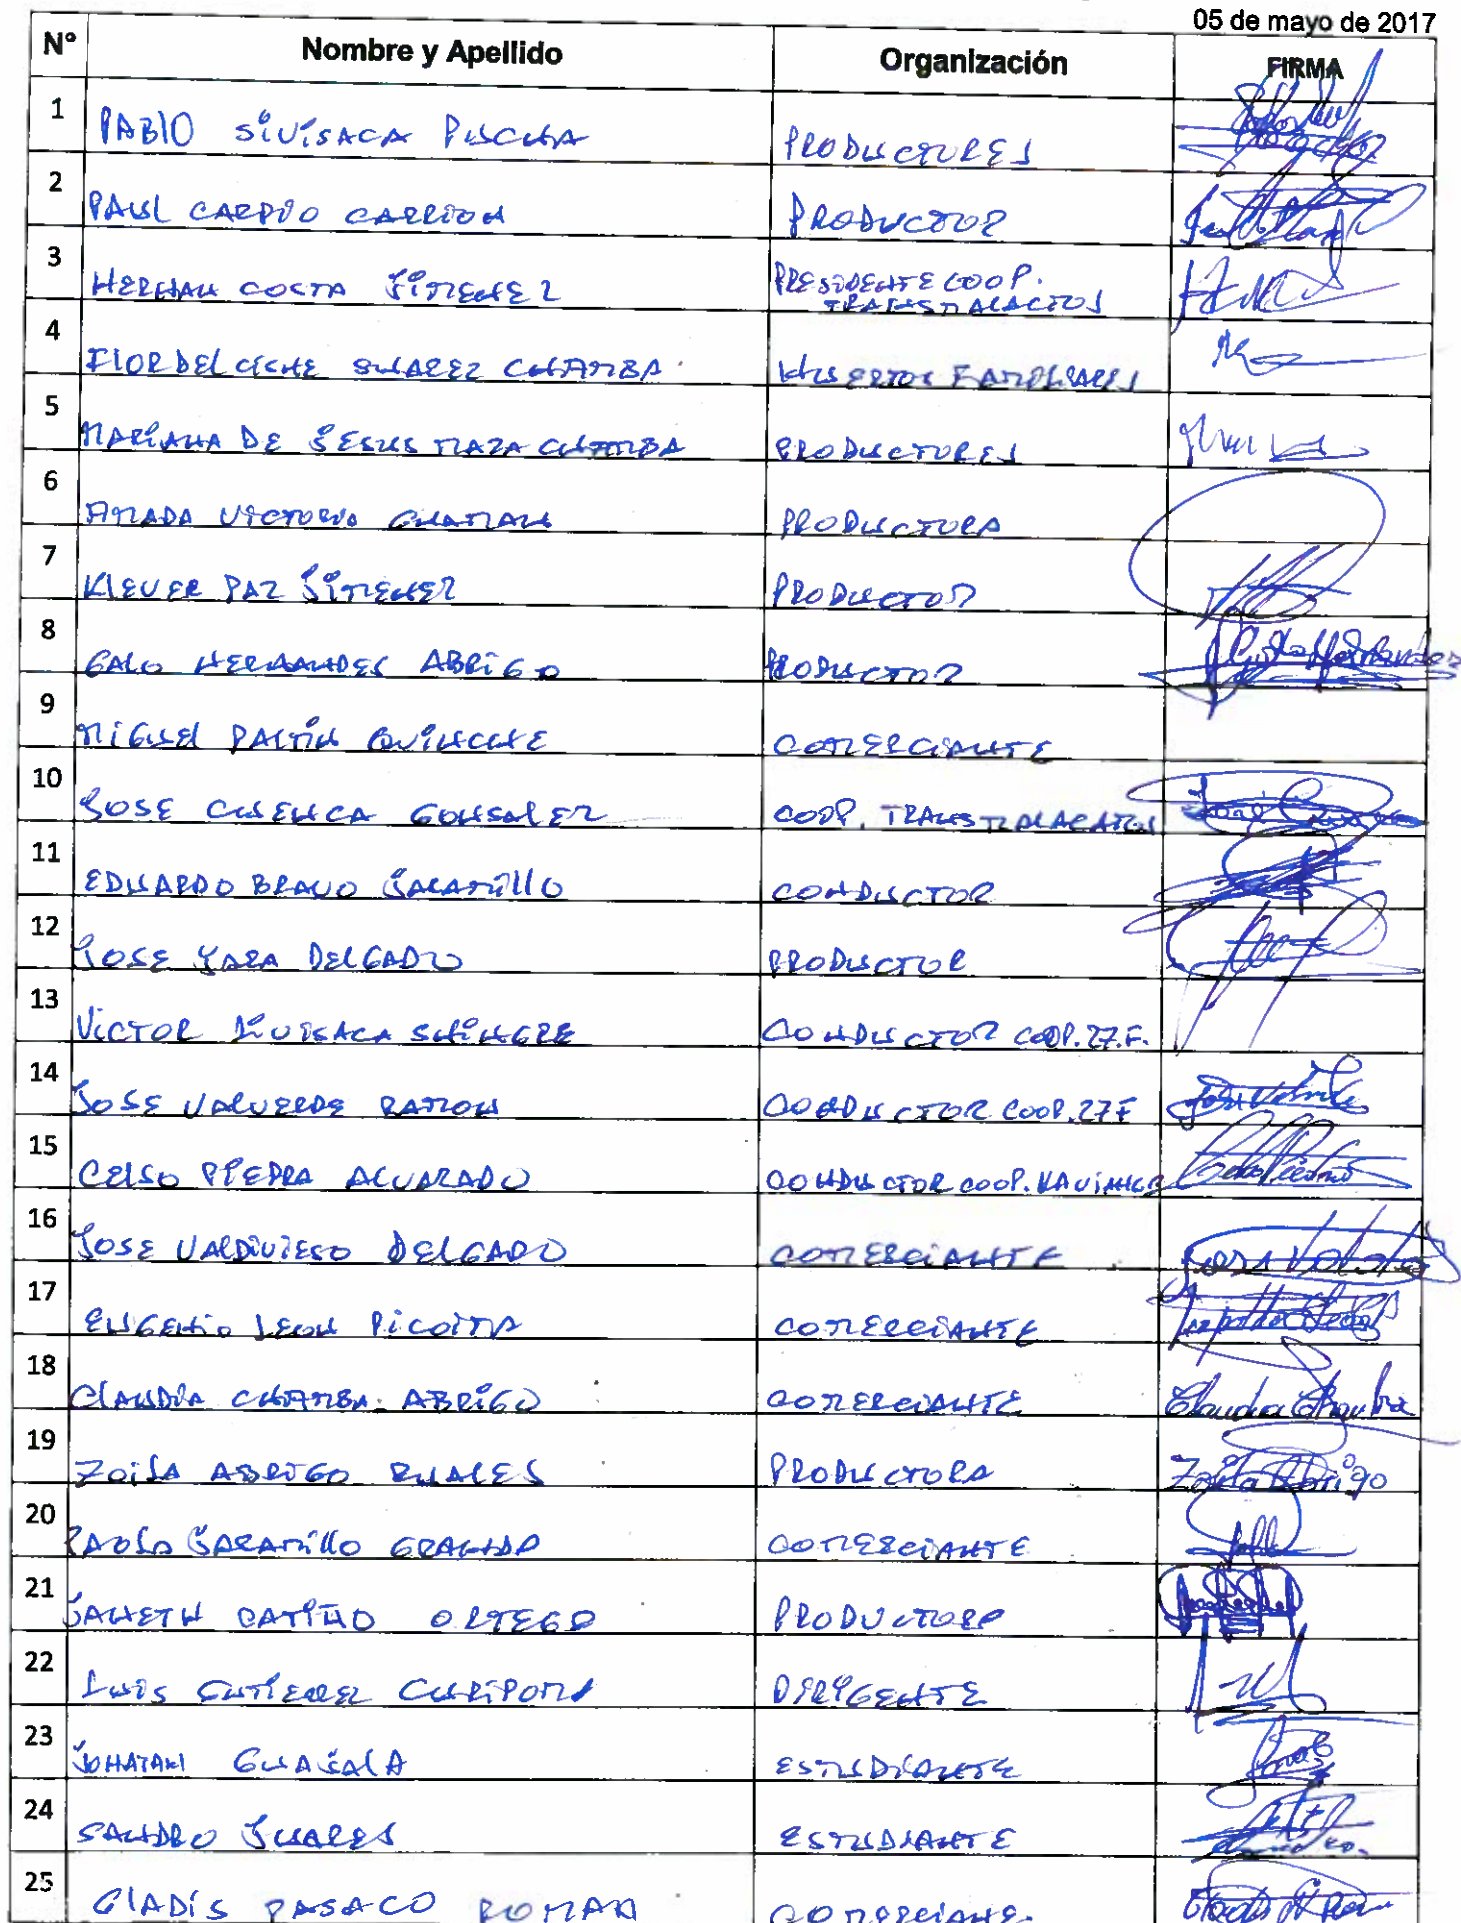 05 de mayo de 2017
N° Nombre y Apellido Organización FIRMA
1 PABLO SIVISACA PUCHA PRODUCTORES
2 PAUL CARPIO CARRION PRODUCTOR
3 HERNAN COSTA JIMENEZ PRESIDENTE COOP. TRANSMALACTOS
4 FLOR DEL CISNE SUAREZ CHAMBA HUERTOS FAMILIARES
5 MARIANA DE JESUS MAZA CHAMBA PRODUCTORES
6 AMADA VICTORIA PRODUCTORA
7 KLEVER PAZ JIMENEZ PRODUCTOR
8 GALO HERNANDES ABRIGO PRODUCTOR Galo Hernandez
9 MIGUEL PALTIN QUINCHE COMERCIANTE
10 JOSE CUENCA GONSALEZ COOP. TRANSMALACATOS
11 EDUARDO BRAVO JARAMILLO CONDUCTOR
12 JOSE JARA DELGADO PRODUCTOR
13 VICTOR SIVISACA SHINGRE CONDUCTOR COOP. 27.F.
14 JOSE VALVERDE RAMON CONDUCTOR COOP. 27 F
15 CELSO PIEDRA ALVARADO CONDUCTOR COOP.
16 JOSE VALDIVIESO DELGADO COMERCIANTE
17 EUGENIO LEON PICOITA COMERCIANTE
18 CLAUDIA CHAMBA ABRIGO COMERCIANTE Claudia Chamba
19 ZOILA ABRIGO RUALES PRODUCTORA Zoila Abrigo
20 PAOLA JARAMILLO GRANDA COMERCIANTE
21 JANETH PATIÑO ORTEGA PRODUCTORA
22 LUIS GUTIERREZ CURIPOMA DIRIGENTE
23 JOHATAN GUAJALA ESTUDIANTE
24 SANDRO JUARES ESTUDIANTE
25 GLADIS PASACO ROMAN COMERCIANE.